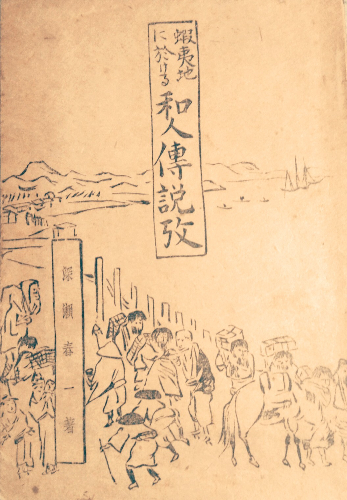 蝦夷地
に於ける
和人傳説攷
深瀬春一著